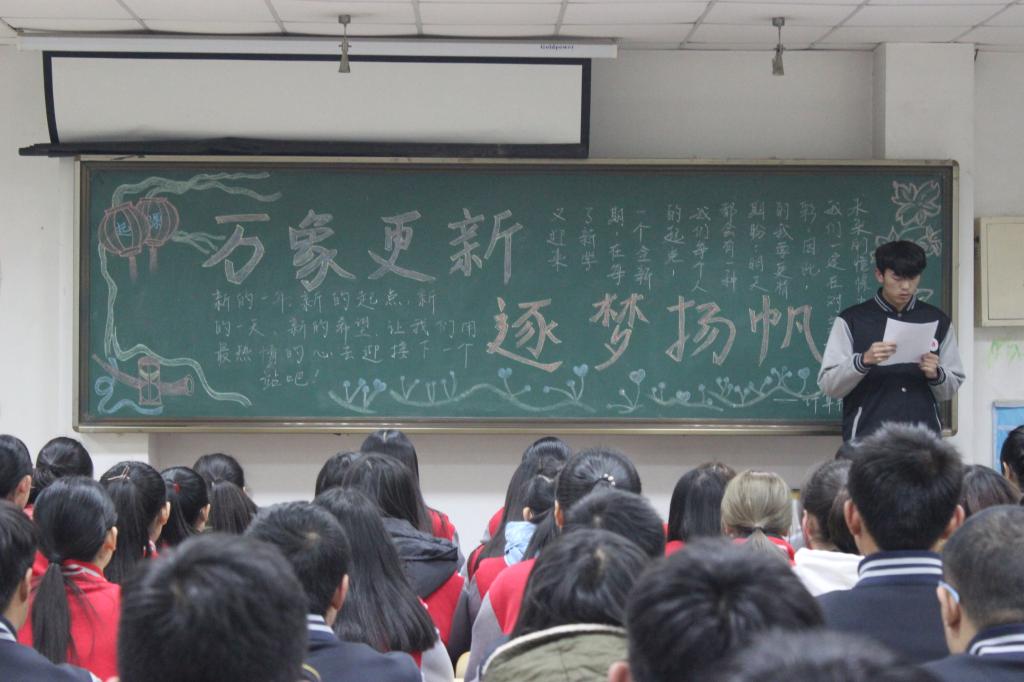 Goldpower
起 航
万象更新
新的一年,新的起点,新
的一天、新的希望,让我们用
最热情的心去迎接下一个
站吧!
逐梦扬帆
又迎来
了新学
期,在每
一个全新
的起点,
我们每个人
都会有一种
期盼,明天
的我要更精
彩,因此,
我们一定在对
未来的憧憬